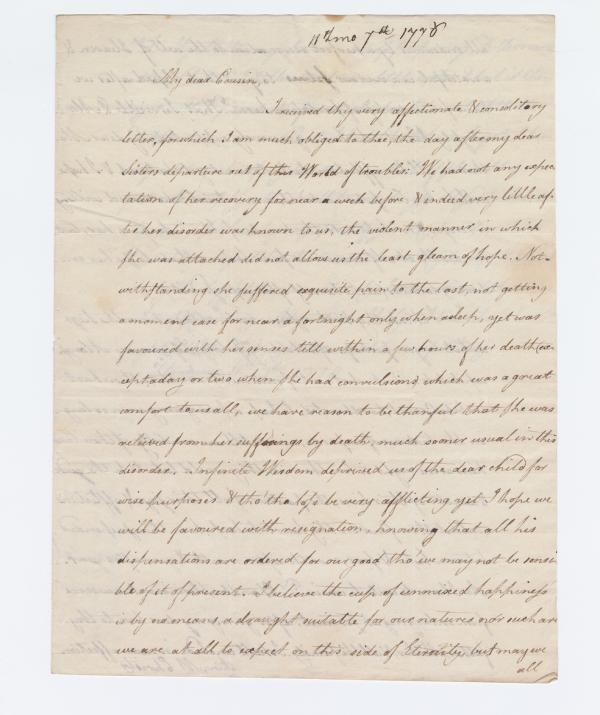 11th mo 7th 1778
My dear Cousin,
I received thy very affectionate & consolitary
letter, for which I am much obliged to thee, the day after my dear
Sisters departure out of this World of troubles. We had not any expec
tation of her recovery for near a week before & indeed very little af-
ter her disorder was known to us, the violent manner in which
she was attached did not allow us the least gleam of hope. Not-
withstanding she suffered exquisite pain to the last, not getting
a moment ease for near a fortnight only when asleep, yet was
favoured with her senses till within a few hours of her death (ex
cept a day or two when she had convulsions) which was a great
comfort to us all, we have reason to be thankful that she was
relieved from her sufferings by death, much sooner usual in this
disorder. Infinite Wisdom deprived us of the dear child for
wise purposes & tho' the loss be very afflicting yet I hope we
will be favoured with resignation, knowing that all his
dispensations are ordered for our good tho' we may not be sensi
ble of it at present. I believe the cup of unmixed happiness
is by no means a draught suitable for our natures nor such are
we are at all to expect on this side of Eternity, but may we
all